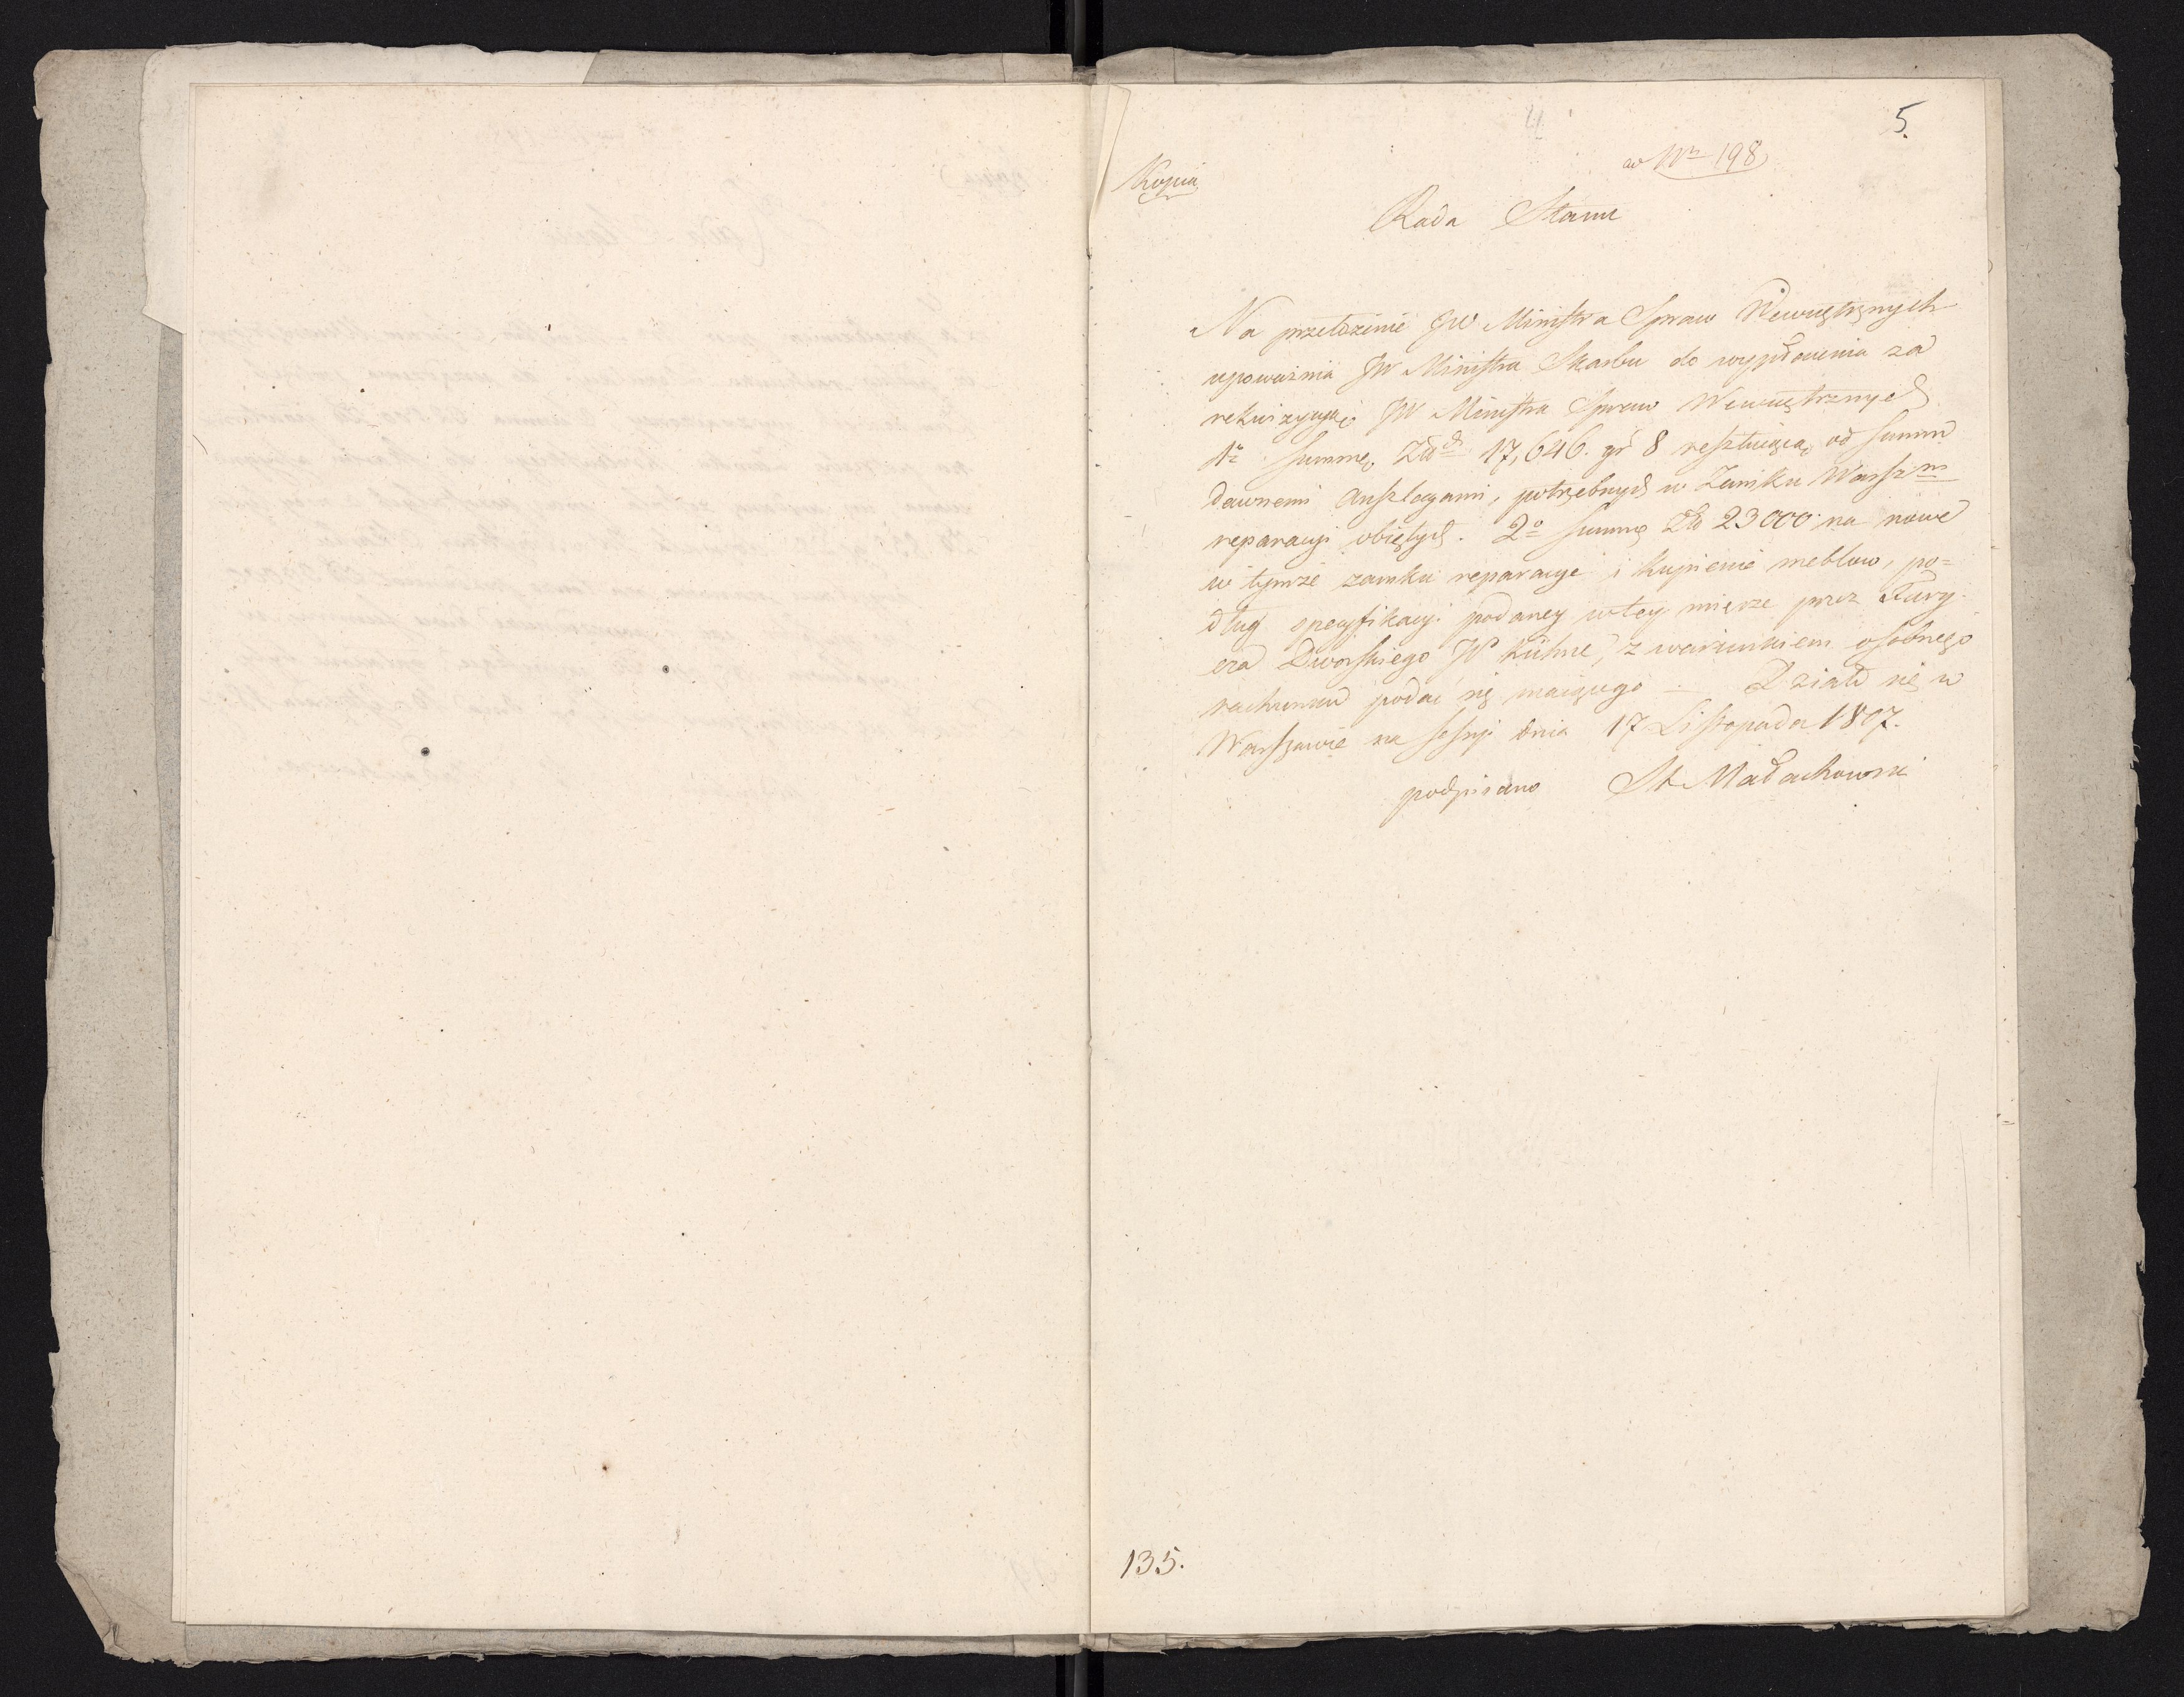 4
5.
ad Nrm 198
Kopia
Rada Stanu
Na przełożenie JW Ministra Spraw Wewnętrznych
upoważnia JW Ministra Skarbu do wypłacenia za
rekwizycyą JW Ministra Spraw Wewnętrznych
1o summę Złł 17,646. gr 8 resztuiącą od summ
dawnemi Anszlagami, potrzebnych w Zamku Warszm
reparacyi obiętych. 2o Summę Złł 23000 na nowe
w tymże zamku reparacye i kupienie meblow, po=
dług specyfikacyi podaney w tey mierze przez Kury-
era Dworskiego W Kühne, z warunkiem osobnego
rachunku podać się maiącego — Działo się w
Warszawie na sessyi dnia 17 Listopada 1807.
podpisano St Małachowski
135.